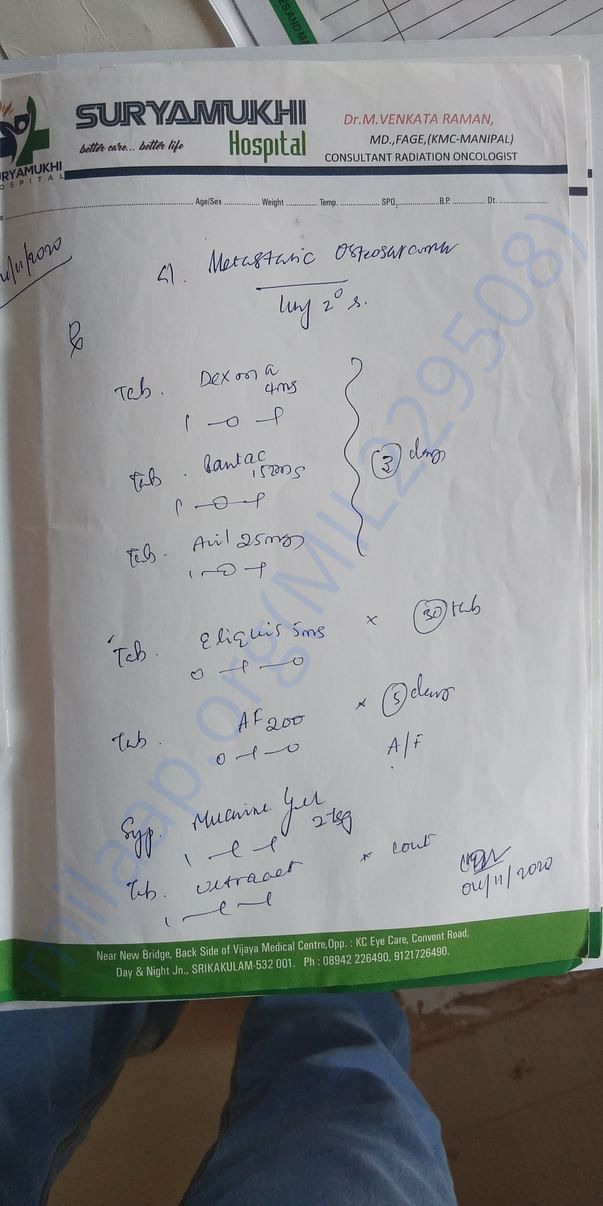 SURYAMUKHI
Hospital
better care... better life
Dr.M.VENKATA RAMAN,
MD.,FAGE,(KMC-MANIPAL)
CONSULTANT RADIATION ONCOLOGIST
RYAMUKHI
Age/Sex Weight Temp. SPO2 B.P. Dt.
/11/2020
Metastatic Osteosarcoma
lung 2° s.
Tab. Dexona
4mg
1-0-1
Tab. Rantac
150mg
1-0-1
3 days
Tab. Avil 25mg
1-0-1
Tab. Eliquis 5mg x 30 tab
0-1-0
Tab. AF 200 x 5 days
0-1-0 A/F
Syp. Mucaine Gel
2tsp
1-1-1
Tab. Ultracet x cont
1-1-1
04/11/2020
Near New Bridge, Back Side of Vijaya Medical Centre,Opp. : KC Eye Care, Convent Road,
Day & Night Jn., SRIKAKULAM-532 001. Ph : 08942 226490, 9121726490.
milaap.org(MIL229508)